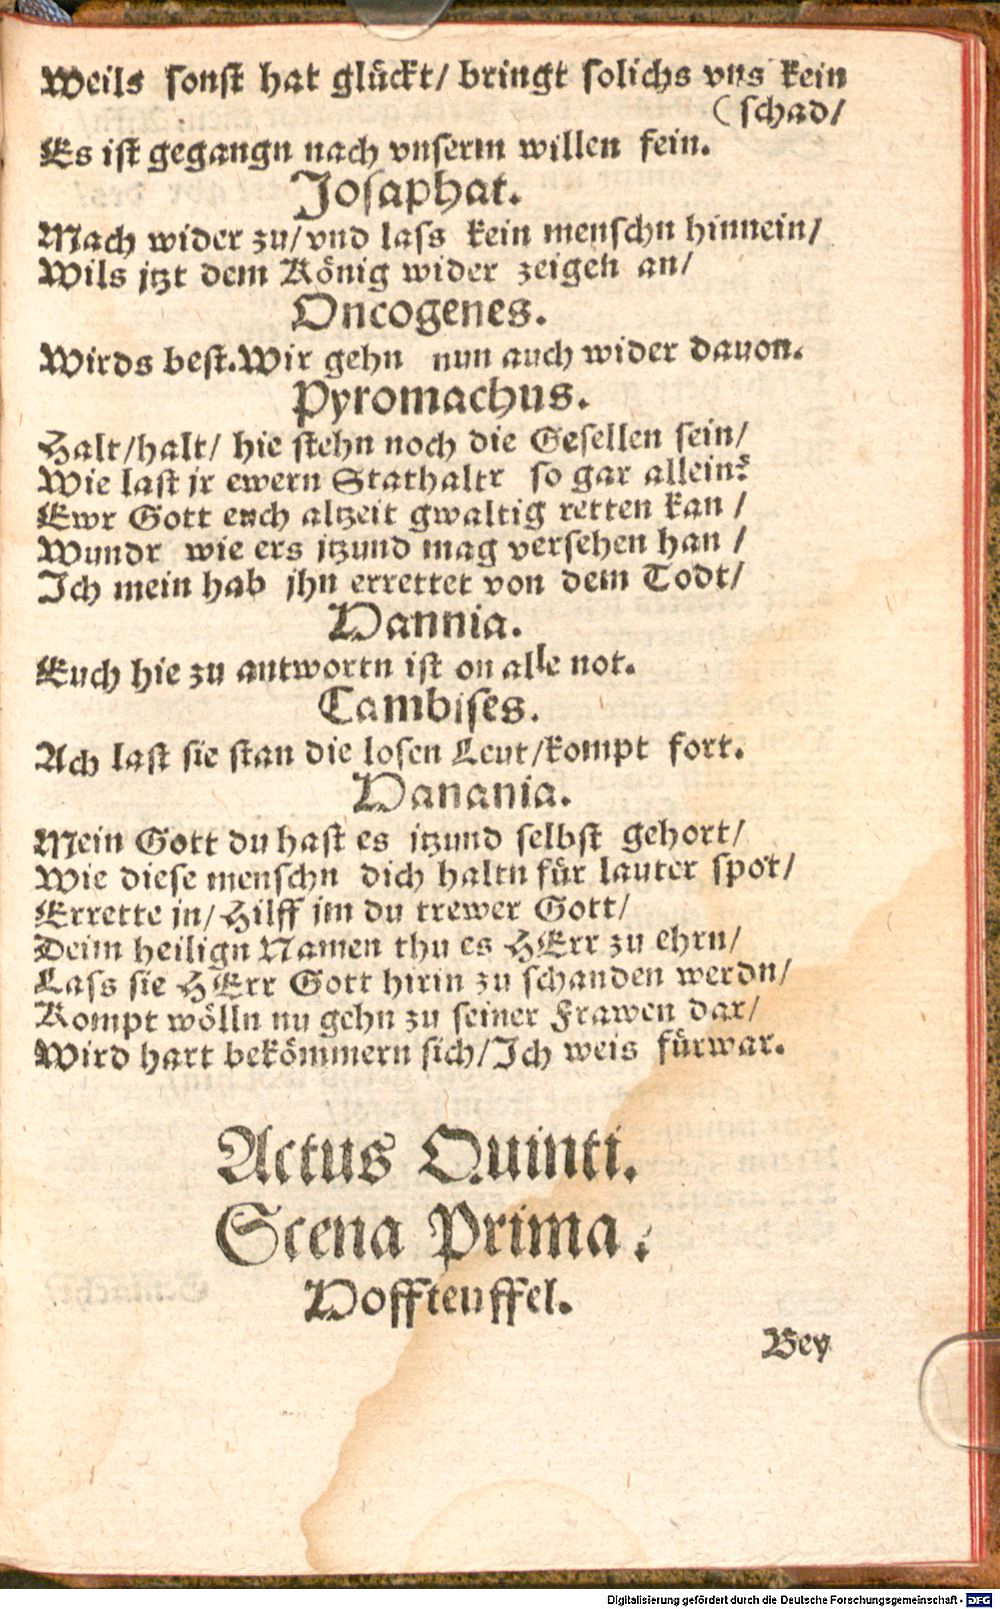 Weils sonst hat glückt/ bringt solichs vns kein
(schad/
Es ist gegangn nach vnserm willen fein.
Josaphat.
Mach wider zu/ vnd lass kein menschn hinnein/
Wils jtzt dem König wider zeigen an/
Oncogenes.
Wirds best. Wir gehn nun auch wider dauon.
Pyromachus.
Halt/halt/ hie stehn noch die Gesellen sein/
Wie last jr ewern Stathaltr so gar allein?
Ewr Gott euch altzeit gwaltig retten kan /
Wundr wie ers jtzund mag versehen han /
Ich mein hab jhn errettet von dem Todt/
Hannia.
Euch hie zu antwortn ist on alle not.
Cambises.
Ach last sie stan die losen Leut/kompt fort.
Hanania.
Mein Gott du hast es jtzund selbst gehort/
Wie diese menschn dich haltn für lauter spot/
Errette jn/ Hilff jm du trewer Gott/
Deim heilign Namen thu es HErr zu ehrn/
Lass sie HErr Gott hirin zu schanden werdn/
Kompt wölln nu gehn zu seiner Frawen dar/
Wird hart bekömmern sich/Ich weis fürwar.
Actus Quinti.
Scena Prima.
Hoffteuffel.
Bey
Digitalisierung gefördert durch die Deutsche Forschungsgemeinschaft - DFG